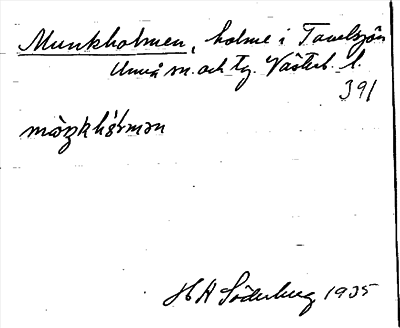 Munkholmen, holme i Tavelsjön
Umeå sn. och tg. Västerb. l.
391
H A Söderberg 1935